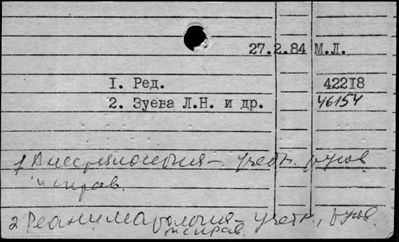 27.2.84 М.Л.
1. Ред. 42218
2. Зуева Л.Н. и др. 46154
1 Анестезиология – учетн. руков
и справ.
2 Реаниматология – учетн., руков
и справ.